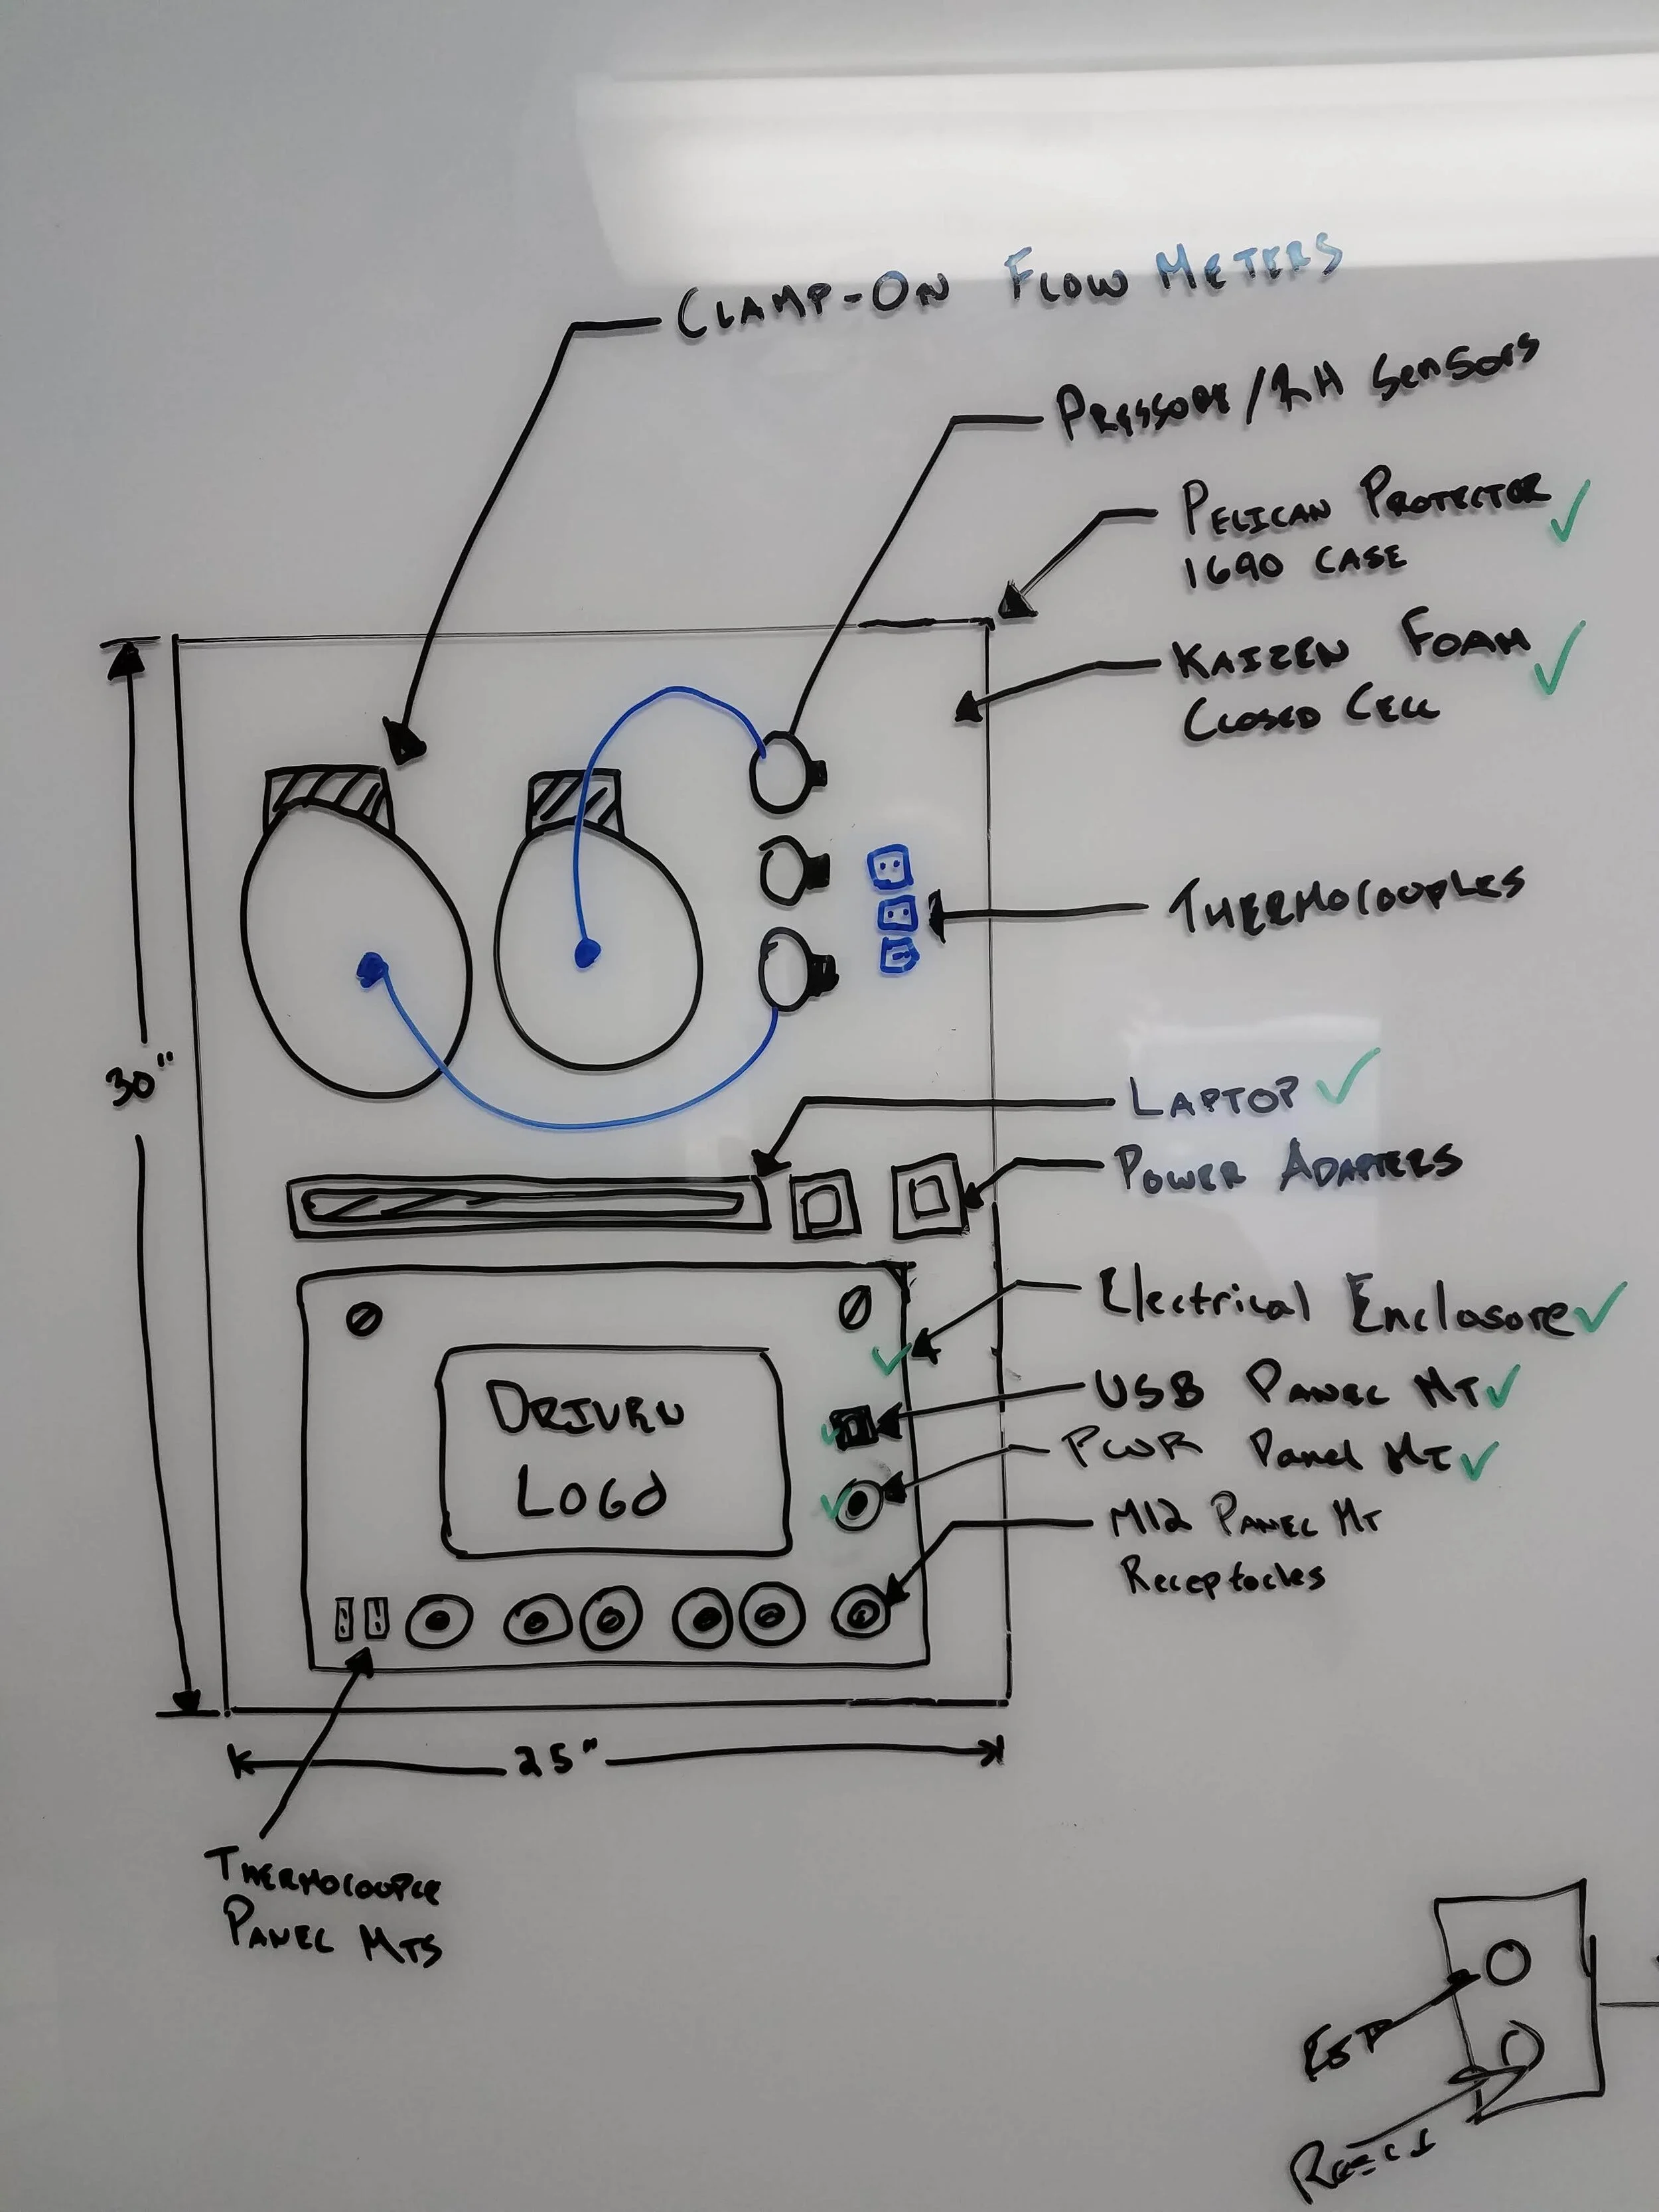 CLAMP-ON FLOW METERS
PRESSURE/RH SENSORS
PELICAN PROTECTOR
1690 CASE
KAIZEN FOAM
CLOSED CELL
THERMOCOUPLES
30"
LAPTOP
POWER ADAPTERS
Electrical Enclosure
USB PANEL MT
PWR Panel MT
M12 PANEL MT
Receptacles
DRIVEN
LOGO
25"
THERMOCOUPLE
PANEL MTS